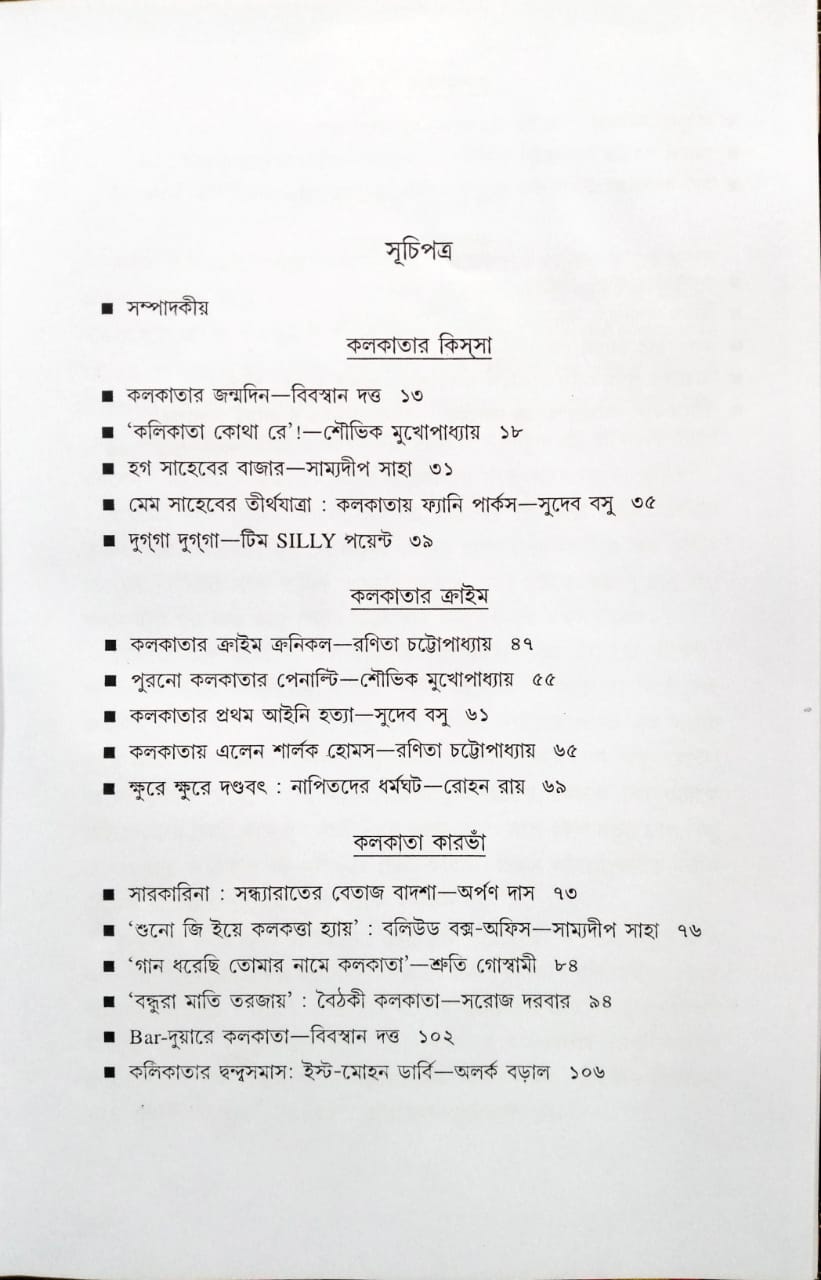 সূচিপত্র
■ সম্পাদকীয়
কলকাতার কিস্‌সা
■ কলকাতার জন্মদিন—বিবস্বান দত্ত ১৩
■ ‘কলিকাতা কোথা রে’!—শৌভিক মুখোপাধ্যায় ১৮
■ হগ সাহেবের বাজার—সাম্যদীপ সাহা ৩১
■ মেম সাহেবের তীর্থযাত্রা : কলকাতায় ফ্যানি পার্কস—সুদেব বসু ৩৫
■ দুগ্‌গা দুগ্‌গা—টিম SILLY পয়েন্ট ৩৯
কলকাতার ক্রাইম
■ কলকাতার ক্রাইম ক্রনিকল—রণিতা চট্টোপাধ্যায় ৪৭
■ পুরনো কলকাতার পেনাল্টি—শৌভিক মুখোপাধ্যায় ৫৫
■ কলকাতার প্রথম আইনি হত্যা—সুদেব বসু ৬১
■ কলকাতায় এলেন শার্লক হোমস—রণিতা চট্টোপাধ্যায় ৬৫
■ ক্ষুরে ক্ষুরে দণ্ডবৎ : নাপিতদের ধর্মঘট—রোহন রায় ৬৯
কলকাতা কারভাঁ
■ সারকারিনা : সন্ধ্যারাতের বেতাজ বাদশা—অর্পণ দাস ৭৩
■ ‘শুনো জি ইয়ে কলকত্তা হ্যায়’ : বলিউড বক্স-অফিস—সাম্যদীপ সাহা ৭৬
■ ‘গান ধরেছি তোমার নামে কলকাতা’—শ্রুতি গোস্বামী ৮৪
■ ‘বন্ধুরা মাতি তরজায়’ : বৈঠকী কলকাতা—সরোজ দরবার ৯৪
■ Bar-দুয়ারে কলকাতা—বিবস্বান দত্ত ১০২
■ কলিকাতার দ্বন্দ্বসমাস: ইস্ট-মোহন ডার্বি—অলর্ক বড়াল ১০৬